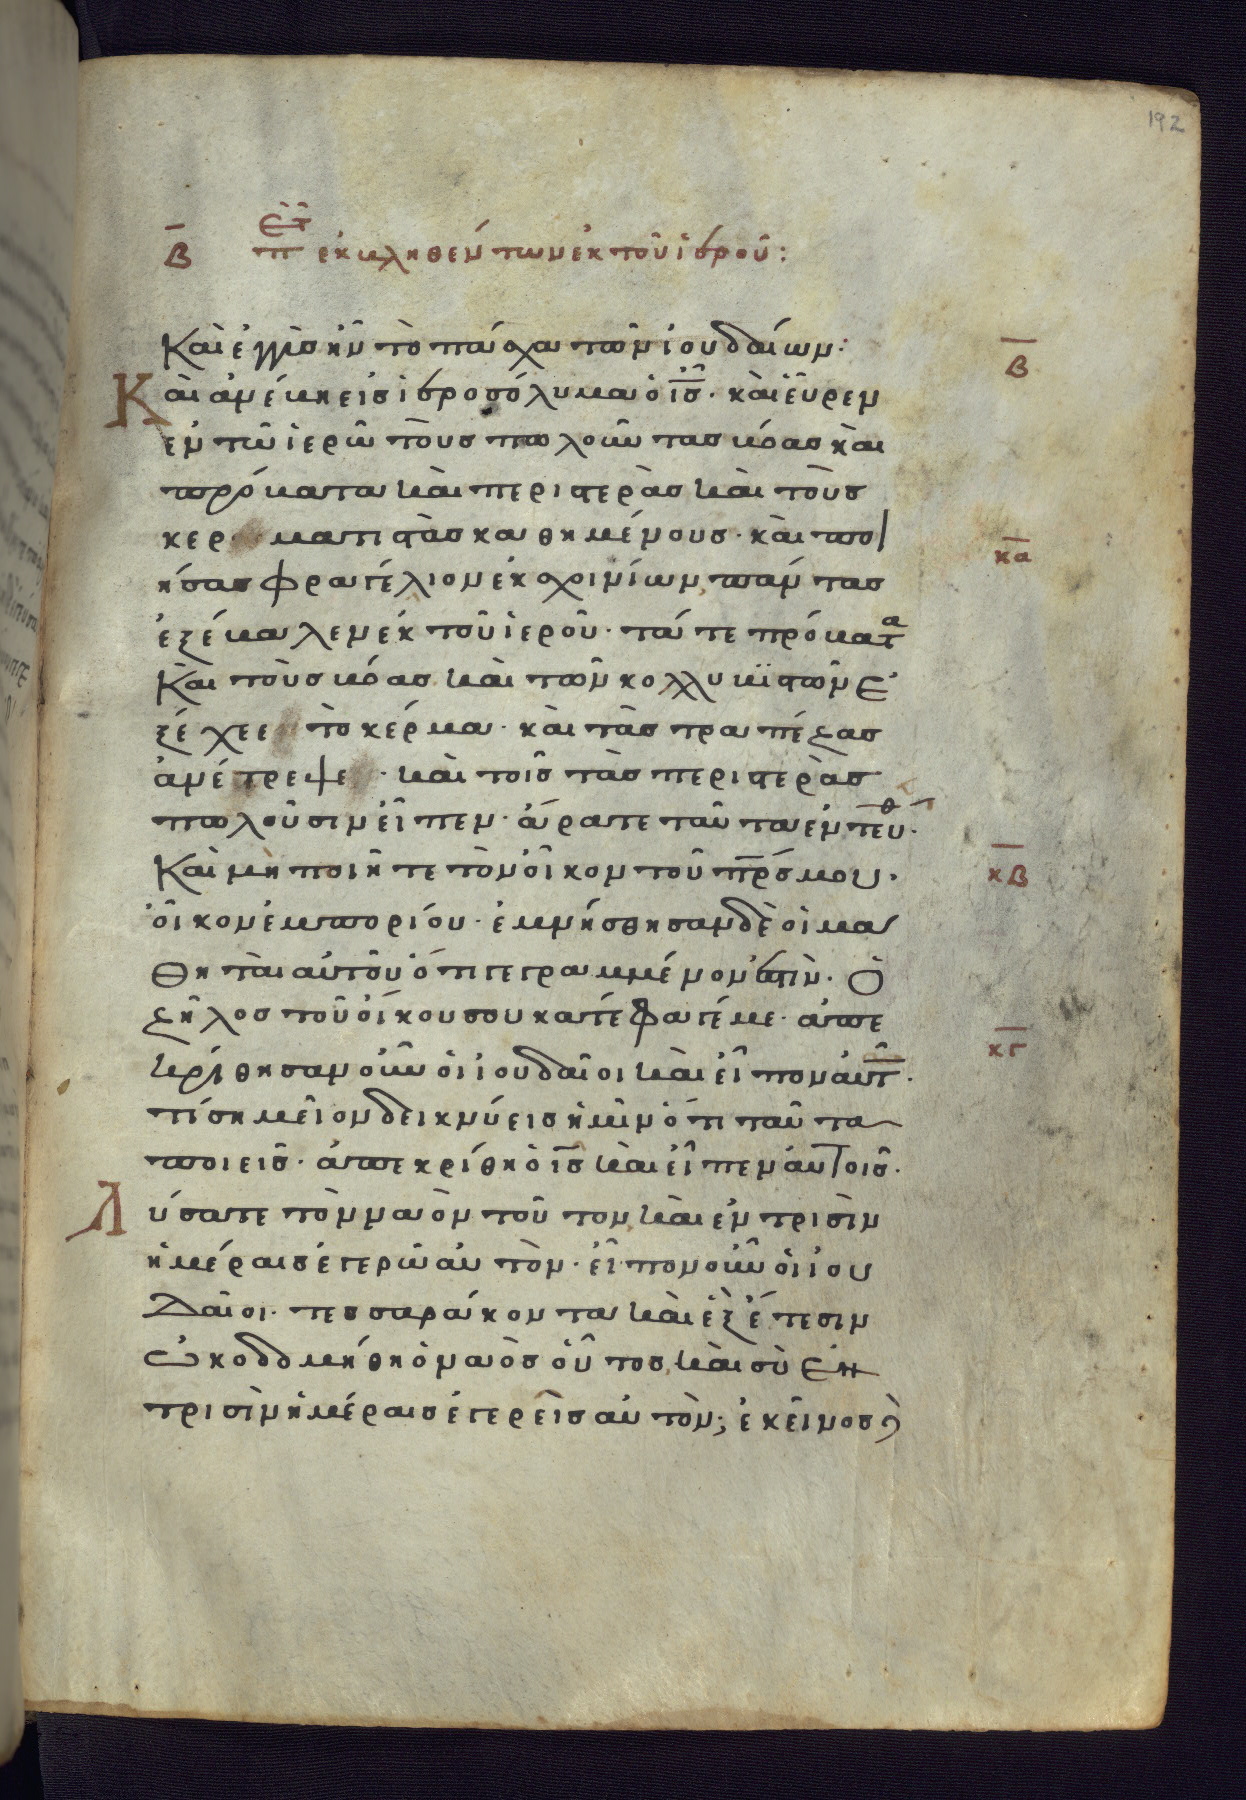 192
Β π ἐκβληθέντων ἐκ τοῦ ἱεροῦ:
Καὶ ἐγγὺς ἦν τὸ πάσχα τῶν ἰουδαίων:
Β
Καὶ ἀνέβη εἰς ἱεροσόλυμα ὁ ις. καὶ εὗρεν
ἐν τῶ ἱερῶ τοὺς πωλοῦντας βόας καὶ
πρόβατα καὶ περιστερὰς καὶ τοὺς
κερματιστὰς καθημένους. καὶ ποι
κα
ήσας φραγέλιον ἐκ σχοινίων, πάντας
ἐξέβαλεν ἐκ τοῦ ἱεροῦ. τά τε πρόβατα
Καὶ τοὺς βόας. καὶ τῶν κολλυβιστῶν ἐ
ξέχεε τὸ κέρμα. καὶ τὰς τραπέζας
ἀνέτρεψε. καὶ τοῖς τὰς περιστερὰς
πωλοῦσιν εἶπεν. ἄρατε ταῦτα ἐντεῦθ.
Καὶ μὴ ποιῆτε τὸν οἶκον τοῦ πρς μου.
κβ
οἶκον ἐμπορίου. ἐμνήσθησαν δὲ οἱ μα
θηταὶ αὐτοῦ ὅτι γεγραμμένον ἐστὶν. Ὁ
ζῆλος τοῦ οἴκου σου κατέφαγέ με. ἀπε
κγ
κρίθησαν οὖν οἱ ἰουδαῖοι καὶ εἶπον αὐτ.
τί σημεῖον δεικνύεις ἡμῖν ὅτι ταῦτα
ποιεῖς. ἀπεκρίθη ὁ ις καὶ εἶπεν αὐτοῖς.
Λύσατε τὸν ναὸν τοῦτον, καὶ ἐν τρισὶν
ἡμέραις ἐγερῶ αὐτὸν. εἶπον οὖν οἱ ἰου
δαῖοι. τεσσαράκοντα καὶ ἓξ ἔτεσιν
ὠκοδομήθη ὁ ναὸς οὗτος, καὶ σὺ ἐν
τρισὶν ἡμέραις ἐγερεῖς αὐτὸν; ἐκεῖνος δὲ